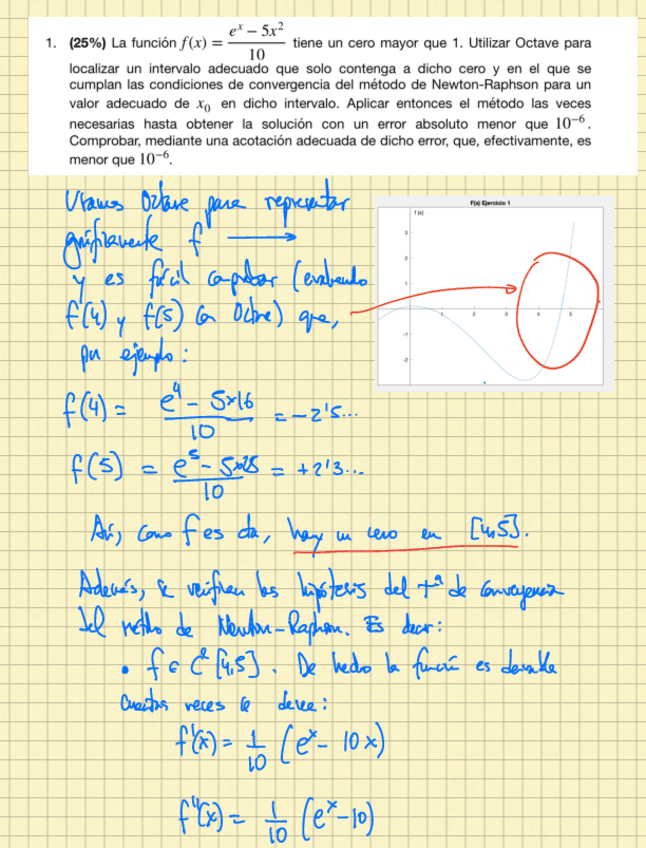 1. (25%) La función f(x) = (e^x − 5x^2)/10 tiene un cero mayor que 1. Utilizar Octave para
localizar un intervalo adecuado que solo contenga a dicho cero y en el que se
cumplan las condiciones de convergencia del método de Newton-Raphson para un
valor adecuado de x_0 en dicho intervalo. Aplicar entonces el método las veces
necesarias hasta obtener la solución con un error absoluto menor que 10^−6.
Comprobar, mediante una acotación adecuada de dicho error, que, efectivamente, es
menor que 10^−6.
Usamos Octave para representar
gráficamente f →
F(x) Ejercicio 1
f (x)
3
2
1
1 2 3 4 5
-1
-2
y es fácil comprobar (evaluando
f(4) y f(5) con Octave) que,
por ejemplo:
f(4) = (e^4 − 5×16)/10 = −2'5...
f(5) = (e^5 − 5×25)/10 = +2'3...
Así, como f es cta, hay un cero en [4,5].
Además, se verifican las hipótesis del t^a de convergencia
del método de Newton-Raphson. Es decir:
• f ∈ C^2 [4,5]. De hecho la función es derivable
cuantas veces se desee:
f'(x) = 1/10 (e^x − 10x)
f''(x) = 1/10 (e^x − 10)